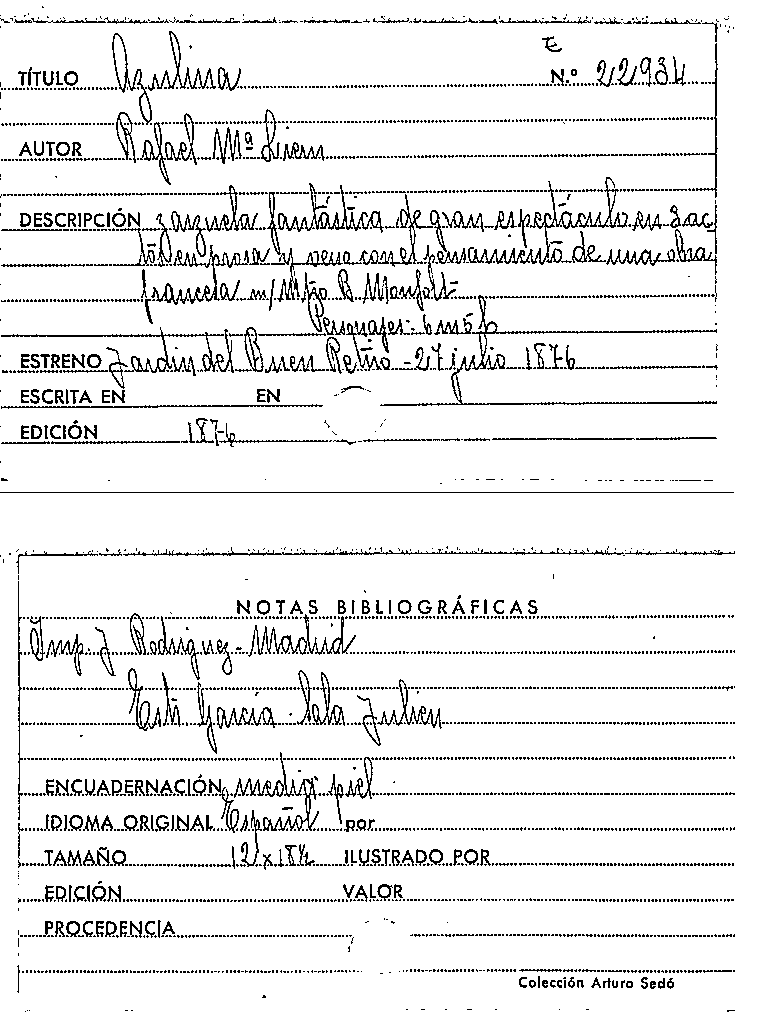 E
TÍTULO Azulina N.º 22934
AUTOR Rafael Mª Liern
DESCRIPCIÓN zarzuela fantástica de gran espectáculo en 3 ac
tos en prosa y verso con el pensamiento de una obra
francesa m/ Mtro B. Monfort
Personajes - 6 m 5 f
ESTRENO Jardin del Buen Retiro - 27 julio 1876
ESCRITA EN EN
EDICIÓN 1876
NOTAS BIBLIOGRÁFICAS
Imp. J Rodriguez - Madrid
García - Sala Julien
ENCUADERNACIÓN media piel
IDIOMA ORIGINAL Español por
TAMAÑO 12 x 18½ ILUSTRADO POR
EDICIÓN VALOR
PROCEDENCIA
Colección Arturo Sedó